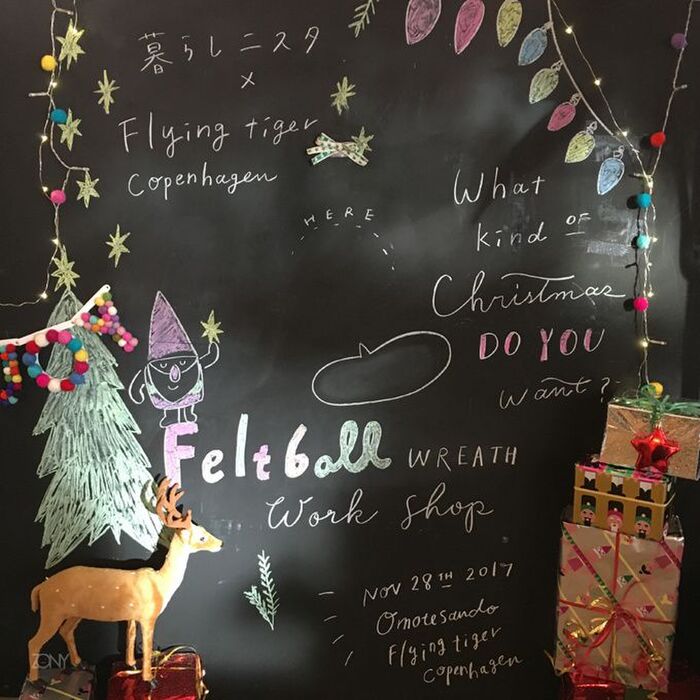 暮らしニスタ
×
Flying tiger
Copenhagen
HERE
What
kind OF
Christmas
DO YOU
want?
Feltball WREATH
Work Shop
NOV 28TH 2017
Omotesando
Flying tiger
Copenhagen
ZONY